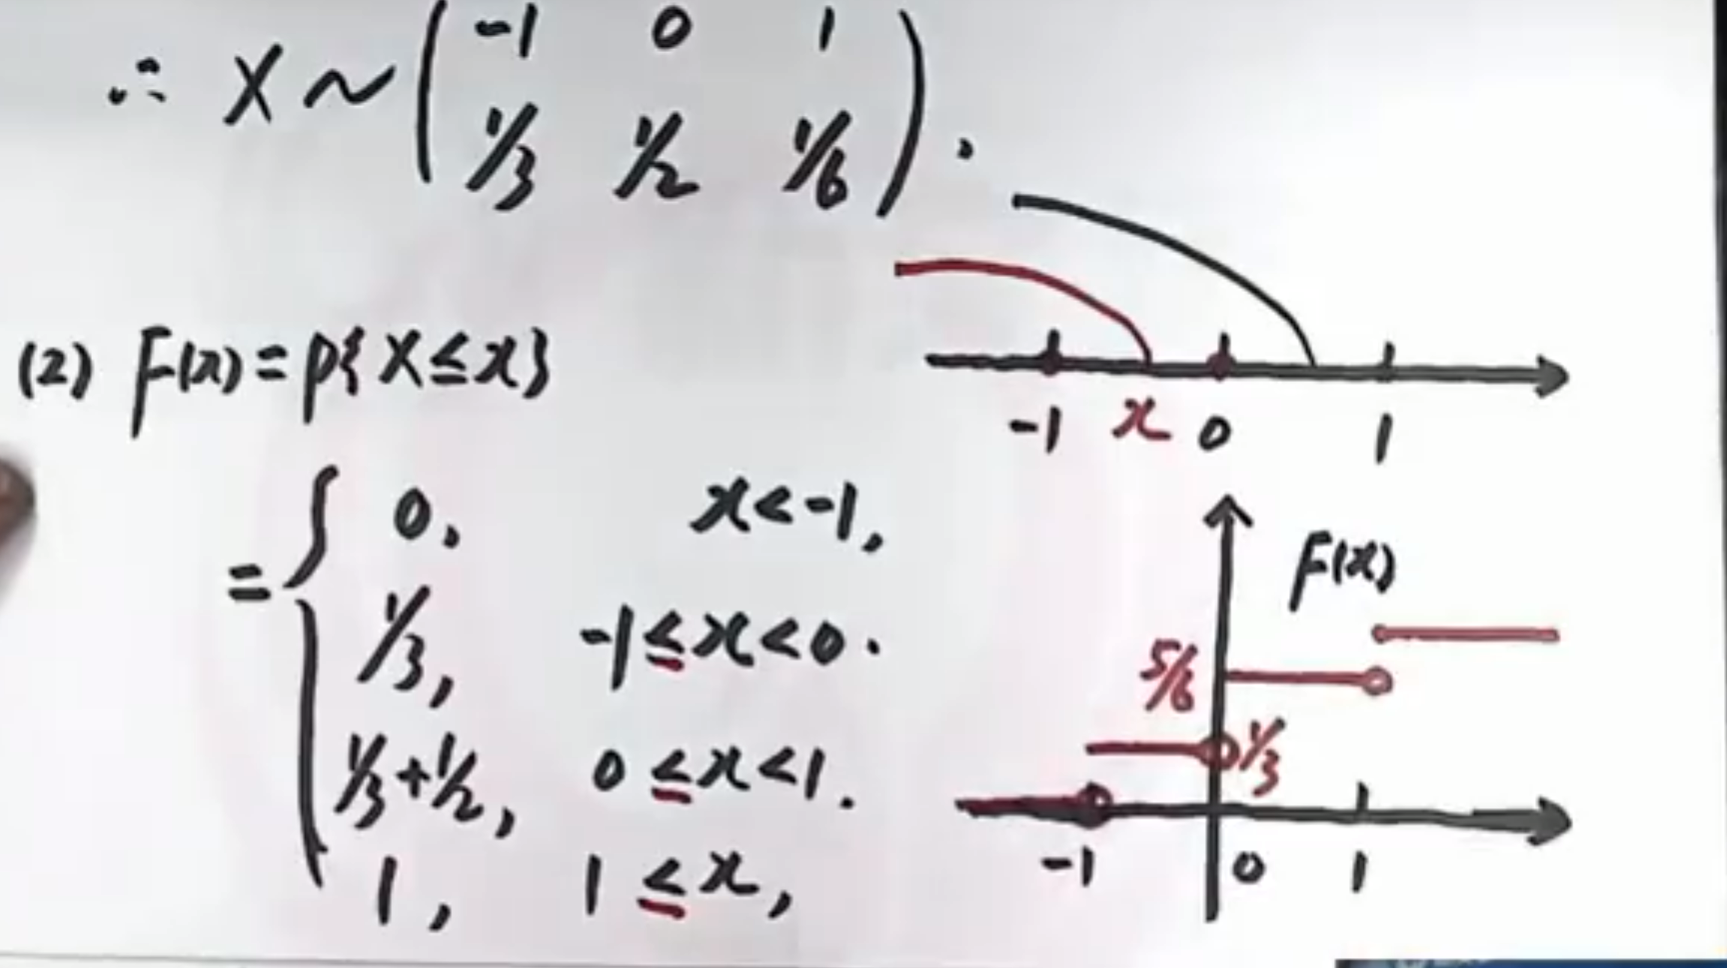 ∴ X ~ ( -1 0 1
1/3 1/2 1/6 ).
(2) F(x) = P{X ≤ x}
-1 x 0 1
= { 0, x < -1,
1/3, -1 ≤ x < 0.
1/3 + 1/2, 0 ≤ x < 1.
1, 1 ≤ x,
F(x)
5/6
1/3
-1 0 1